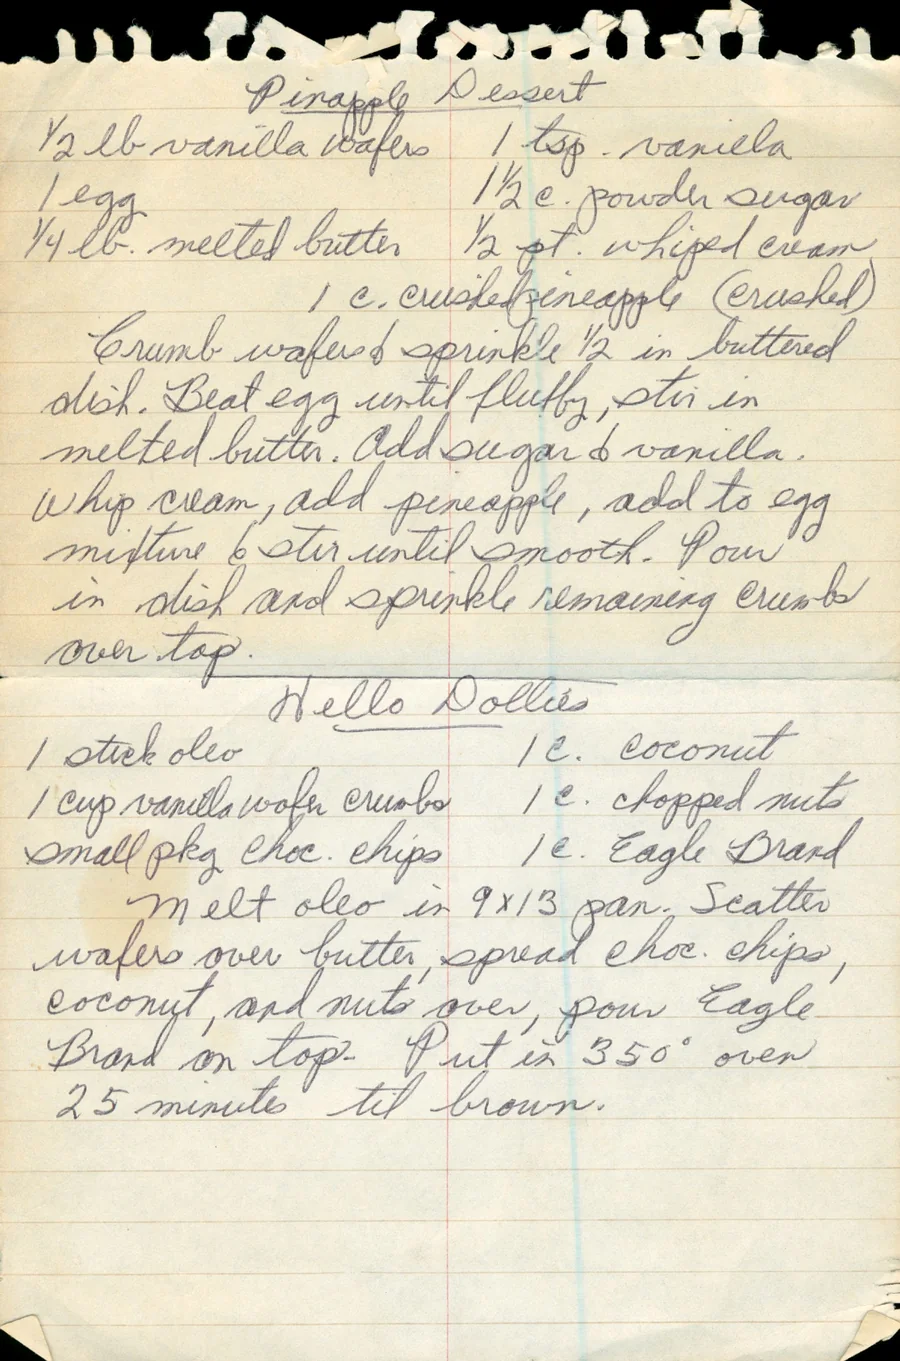 Pinapple Dessert
1/2 lb vanilla wafers 1 tsp. vanilla
1 egg 1 1/2 c. powder sugar
1/4 lb. melted butter 1/2 pt. whiped cream
1 c. crushed pineapple (crushed)
Crumb wafers & sprinkle 1/2 in buttered
dish. Beat egg until fluffy, stir in
melted butter. Add sugar & vanilla.
Whip cream, add pineapple, add to egg
mixture & stir until smooth. Pour
in dish and sprinkle remaining crumbs
over top.
Hello Dollies
1 stick oleo 1 c. coconut
1 cup vanilla wafer crumbs 1 c. chopped nuts
small pkg choc. chips 1 c. Eagle Brand
Melt oleo in 9x13 pan. Scatter
wafers over butter, spread choc. chips,
coconut, and nuts over, pour Eagle
Brand on top. Put in 350° oven
25 minutes til brown.